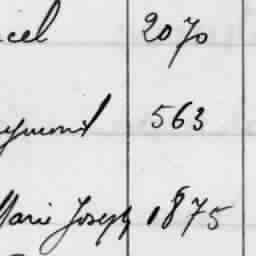 cel 2070
ymond 563
Marie Joseph 1875